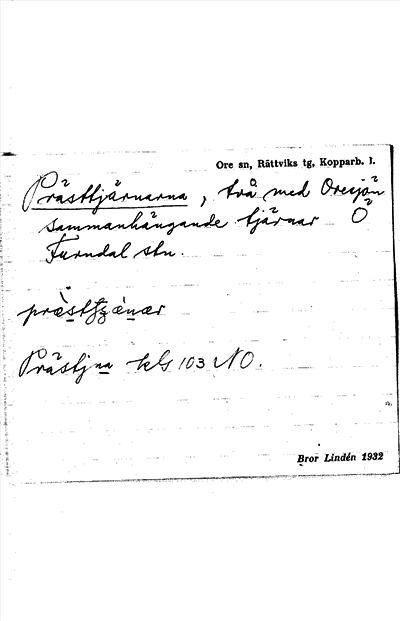 Ore sn, Rättviks tg, Kopparb. l.
Prästtjärnarna, två med Oresjön
sammanhängande tjärnar Ö
Furudal stn.
Prästjna kbl 103 NO.
Bror Lindén 1932